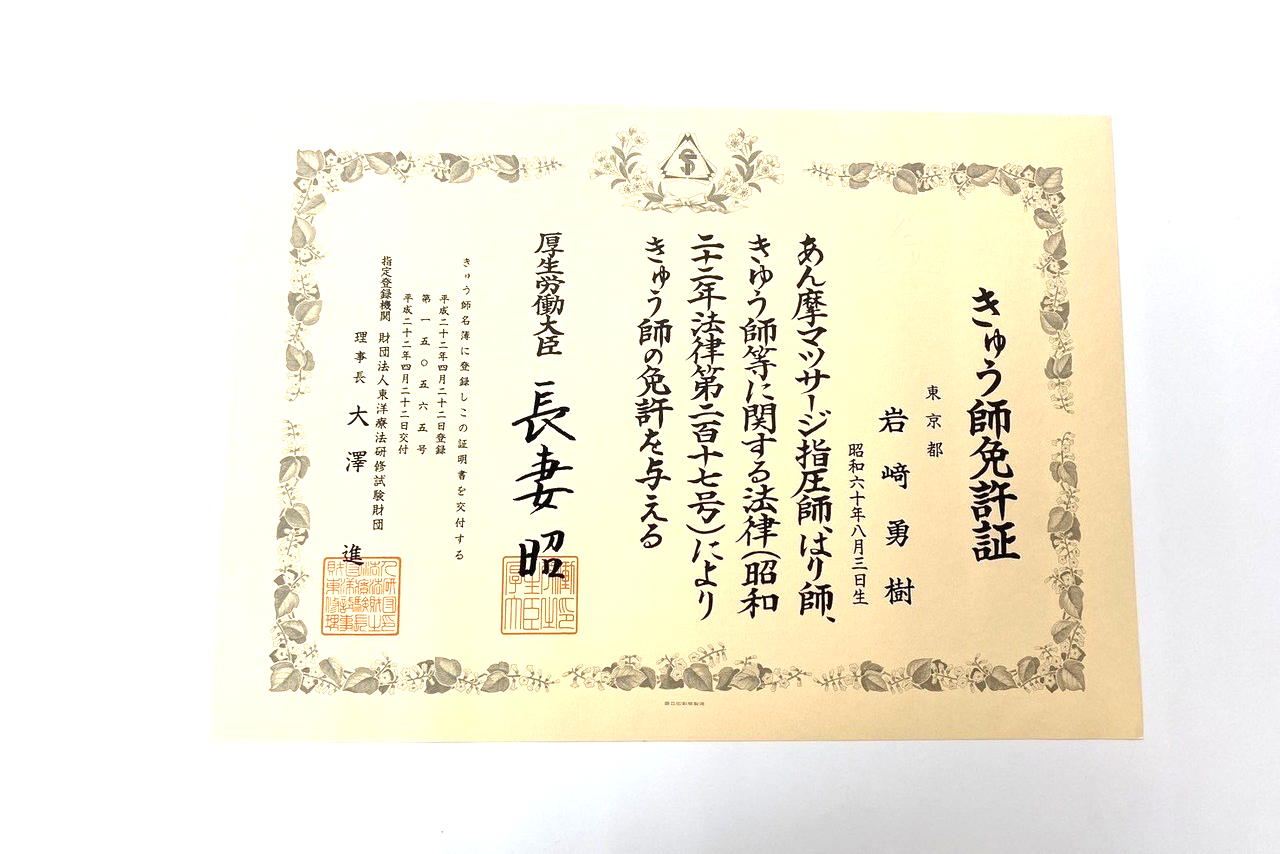 きゅう師免許証
東京都
岩﨑勇樹
昭和六十年八月三日生
あん摩マツサージ指圧師、はり師、
きゆう師等に関する法律(昭和
二十二年法律第二百十七号)により
きゅう師の免許を与える
厚生労働大臣 長妻昭
きゅう師名簿に登録しこの証明書を交付する
平成二十二年四月二十二日登録
第一五〇五六五号
平成二十二年四月二十二日交付
指定登録機関 財団法人東洋療法研修試験財団
理事長 大澤進